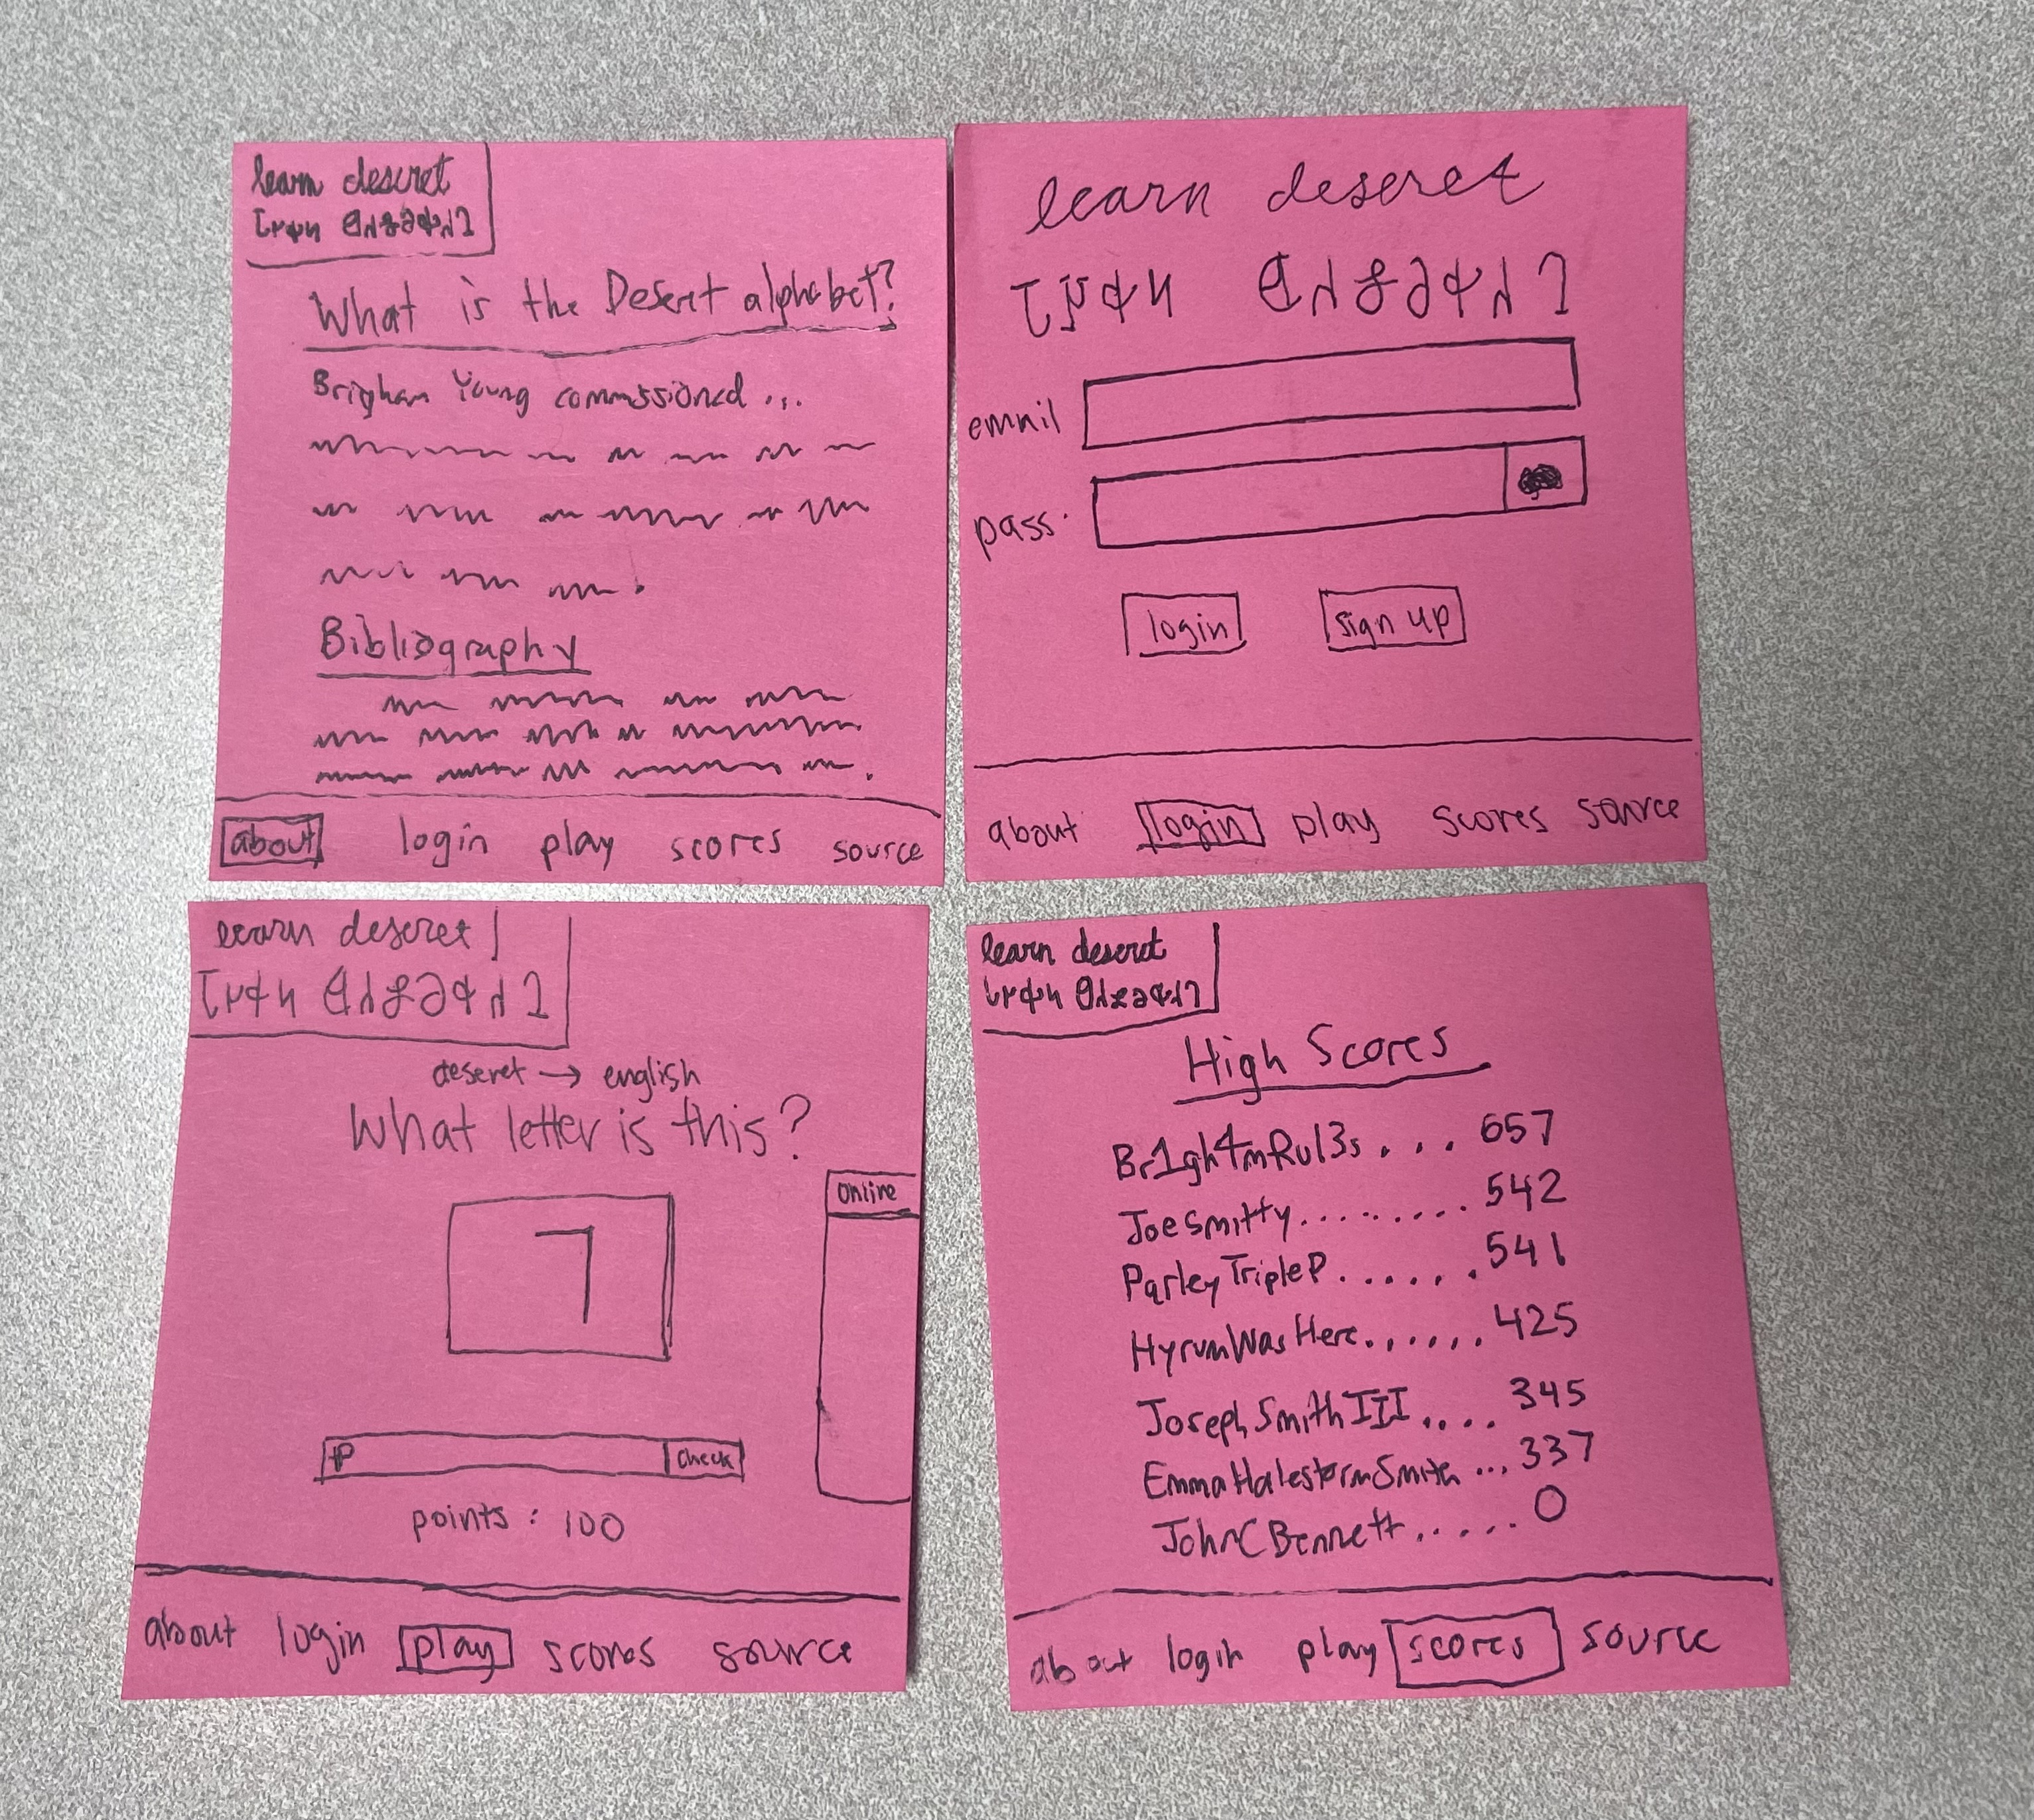 learn deseret
𐑊𐐲𐑉𐑌 𐐔𐐯𐑅𐐨𐑉𐐯𐐻
What is the Deseret alphabet?
Brigham Young commissioned ...
Bibliography
about login play scores source
learn deseret
𐑊𐐲𐑉𐑌 𐐔𐐯𐑅𐐨𐑉𐐯𐐻
email
pass.
login sign up
about login play scores source
learn deseret
𐑊𐐲𐑉𐑌 𐐔𐐯𐑅𐐨𐑉𐐯𐐻
deseret → english
What letter is this?
Online
𐐹
P check
points: 100
about login play scores source
learn deseret
𐑊𐐲𐑉𐑌 𐐔𐐯𐑅𐐨𐑉𐐯𐐻
High Scores
Br1gh4mRul3s . . . 657
JoeSmitty......... 542
ParleyTripleP....... 541
HyrumWasHere...... 425
JosephSmithIII.... 345
EmmaHalestormSmith ... 337
JohnCBennett...... 0
about login play scores source